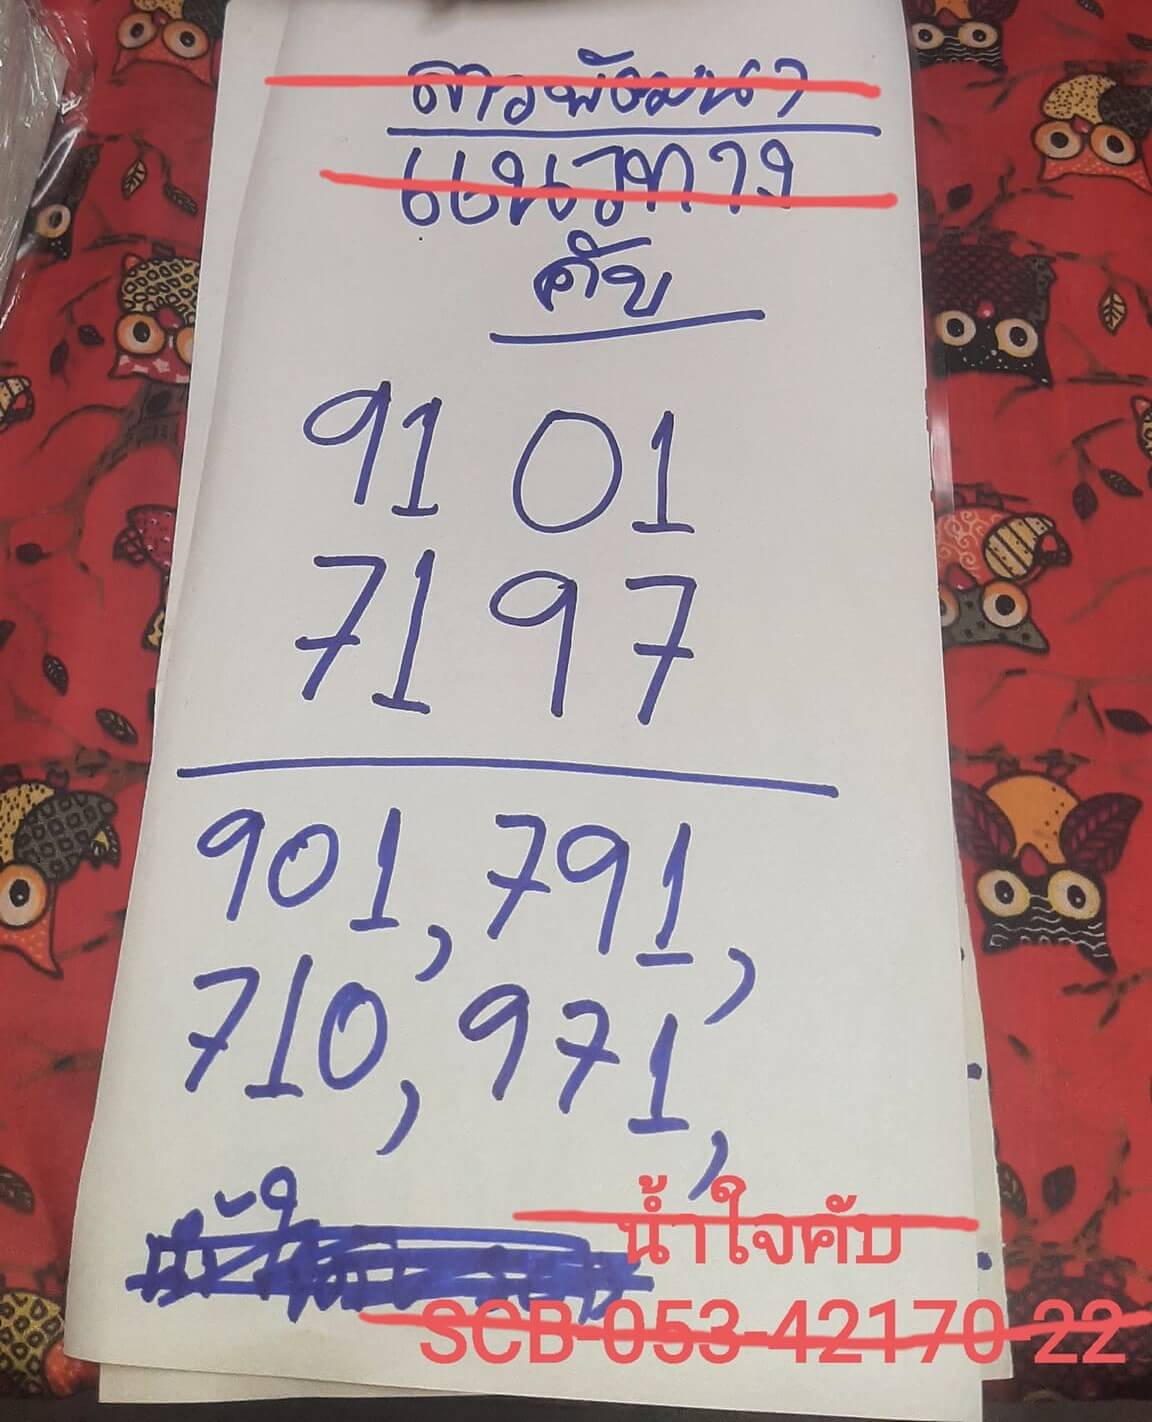 แนวทาง
คับ
91 01
71 97
901, 791,
710, 971,
น้ำใจคับ
SCB-053-42170-22